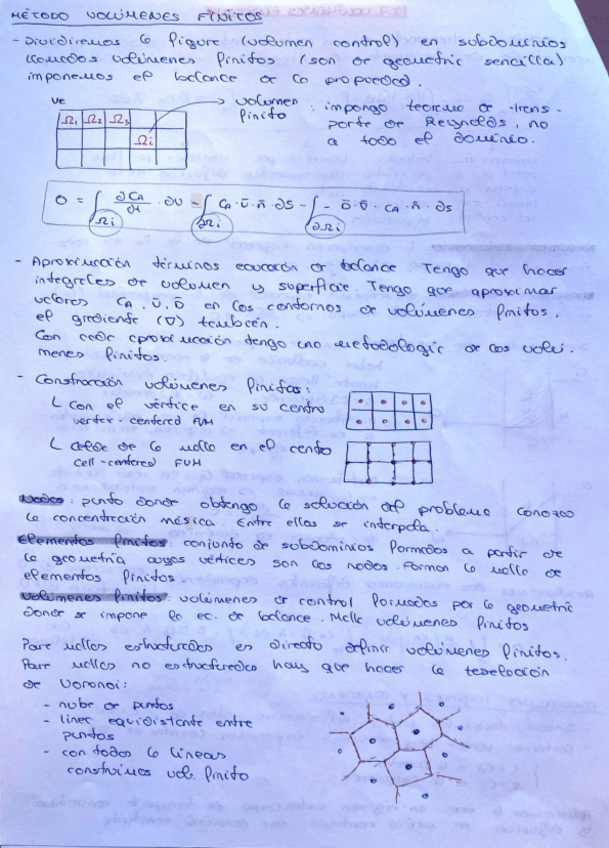 MÉTODO VOLÚMENES FINITOS
- Dividiremos la figura (volumen control) en subdominios
llamados volúmenes finitos (son de geometría sencilla)
imponemos el balance de la propiedad.
Vc
Ω1 Ω2 Ω3
Ωi
volumen finito : impongo teorema de trans-
porte de Reynolds, no
a todo el dominio.
0 = ∫Ωi ∂CA/∂t · ∂V - ∫∂Ωi CA · ū · n̄ · ∂S - ∫∂Ωi - D̄ · ∇̄ · CA · n̄ · ∂S
- Aproximación términos ecuación de balance. Tengo que hacer
integrales de volumen y superficie. Tengo que aproximar
valores CA, ū, D̄ en los contornos de volúmenes finitos,
el gradiente (∇) también.
Con cada aproximación tengo una metodología de los volú-
menes finitos.
- Construcción volúmenes finitos:
└ con el vértice en su centro
vertex-centered FVM
└ celda de la malla en el centro
cell-centered FVM
Nodos: punto donde obtengo la solución del problema conozco
la concentración másica. Entre ellos se interpola.
Elementos finitos: conjunto de subdominios formados a partir de
la geometría cuyos vértices son los nodos. Forman la malla de
elementos finitos.
Volúmenes finitos: volúmenes de control formados por la geometría
donde se impone la ec. de balance. Malla volúmenes finitos
Para mallas estructuradas es directo definir volúmenes finitos.
Para mallas no estructuradas hay que hacer la teselación
de Voronoi:
- nube de puntos
- línea equidistante entre
puntos
- con todas la líneas
construimos vol. finito